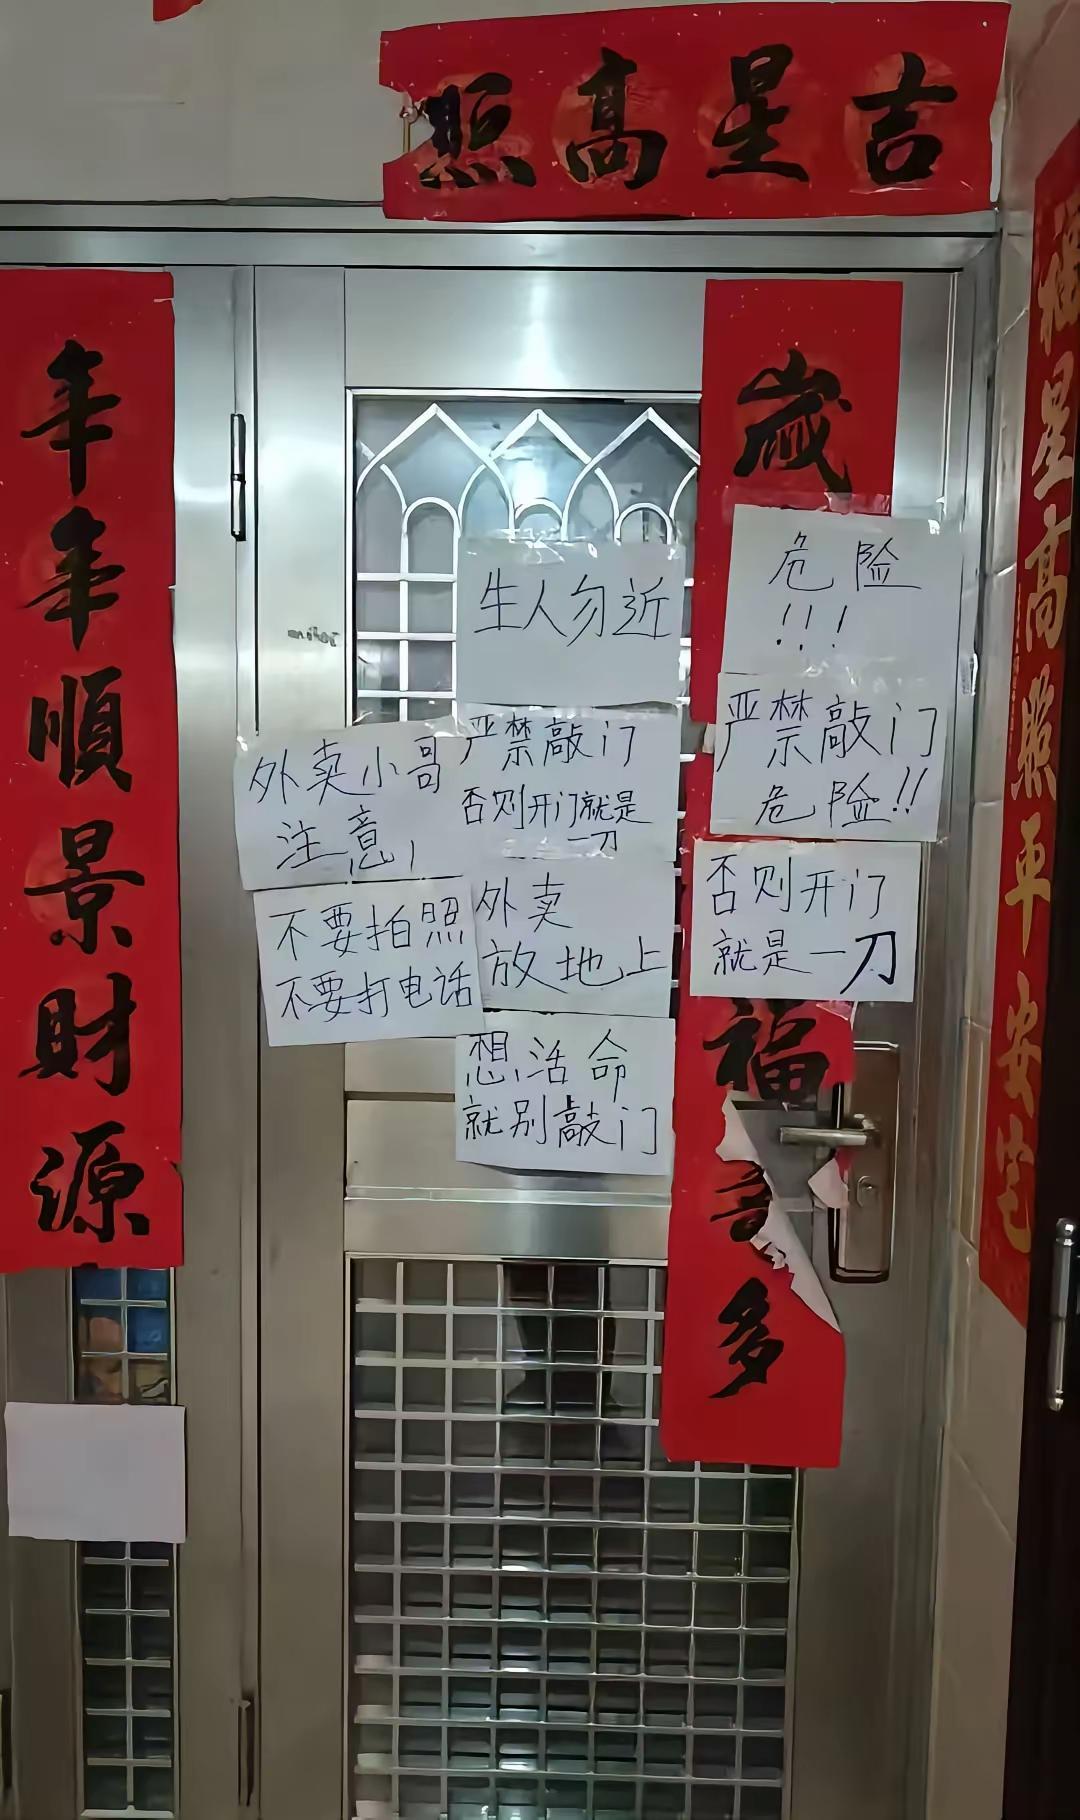 吉星高照
年年順景財源
歲
福
多
福星高照平安宅
生人勿近
危险
!!!
外卖小哥
注意!
严禁敲门
否则开门就是
一刀
严禁敲门
危险!!
不要拍照
不要打电话
外卖
放地上
否则开门
就是一刀
想活命
就别敲门